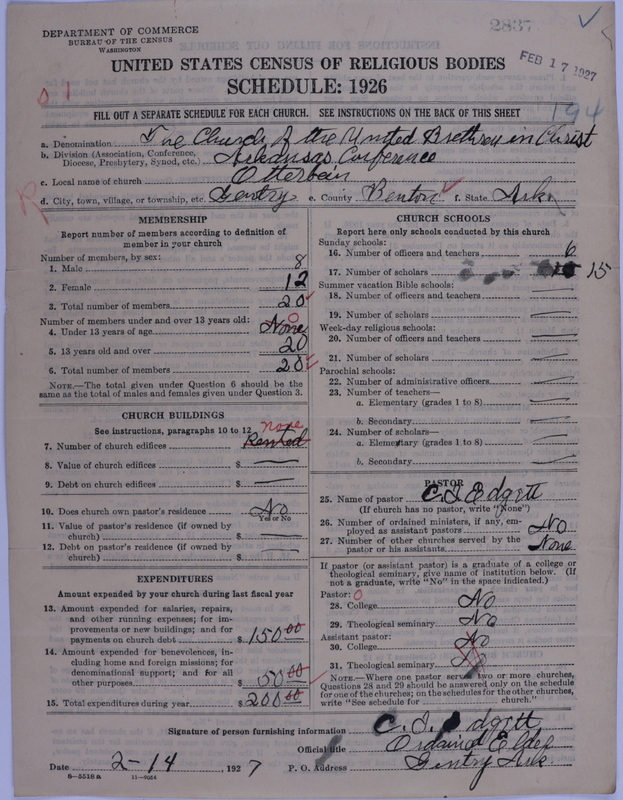 DEPARTMENT OF COMMERCE
BUREAU OF THE CENSUS
WASHINGTON
2837
FEB 17 1927
UNITED STATES CENSUS OF RELIGIOUS BODIES
SCHEDULE: 1926
0 1
194
FILL OUT A SEPARATE SCHEDULE FOR EACH CHURCH. SEE INSTRUCTIONS ON THE BACK OF THIS SHEET
a. Denomination The Church of the United Brethren in Christ
b. Division (Association, Conference, Diocese, Presbytery, Synod, etc.) Arkansas Conference
c. Local name of church Otterbein
d. City, town, village, or township, etc. Gentry e. County Benton f. State Ark
R
MEMBERSHIP
Report number of members according to definition of member in your church
Number of members, by sex:
1. Male 8
2. Female 12
3. Total number of members 20
Number of members under and over 13 years old: 0
4. Under 13 years of age None
5. 13 years old and over 20
6. Total number of members 20
NOTE.—The total given under Question 6 should be the same as the total of males and females given under Question 3.
CHURCH BUILDINGS
See instructions, paragraphs 10 to 12 none
7. Number of church edifices Rented
8. Value of church edifices $ —
9. Debt on church edifices $ —
10. Does church own pastor's residence No
Yes or No
11. Value of pastor's residence (if owned by church) $ —
12. Debt on pastor's residence (if owned by church) $ —
EXPENDITURES
Amount expended by your church during last fiscal year
13. Amount expended for salaries, repairs, and other running expenses; for improvements or new buildings; and for payments on church debt $ 150.00
14. Amount expended for benevolences, including home and foreign missions; for denominational support; and for all other purposes $ 50.00
15. Total expenditures during year $ 200.00
CHURCH SCHOOLS
Report here only schools conducted by this church
Sunday schools:
16. Number of officers and teachers 6
17. Number of scholars 15
Summer vacation Bible schools:
18. Number of officers and teachers —
19. Number of scholars —
Week-day religious schools:
20. Number of officers and teachers —
21. Number of scholars —
Parochial schools:
22. Number of administrative officers —
23. Number of teachers—
a. Elementary (grades 1 to 8) —
b. Secondary —
24. Number of scholars—
a. Elementary (grades 1 to 8) —
b. Secondary —
PASTOR
25. Name of pastor C. I. Edgett
(If church has no pastor, write "None")
26. Number of ordained ministers, if any, employed as assistant pastors No
27. Number of other churches served by the pastor or his assistants None
If pastor (or assistant pastor) is a graduate of a college or theological seminary, give name of institution below. (If not a graduate, write "No" in the space indicated.)
Pastor: 0
28. College No
29. Theological seminary No
Assistant pastor:
30. College No
31. Theological seminary
NOTE.—Where one pastor serves two or more churches, Questions 28 and 29 should be answered only on the schedule for one of the churches; on the schedules for the other churches, write "See schedule for ........ church."
Signature of person furnishing information C. I. Edgett
Official title Ordained Elder
Date 2-14 1927 P. O. Address Gentry Ark.
8—5518a 11—9064